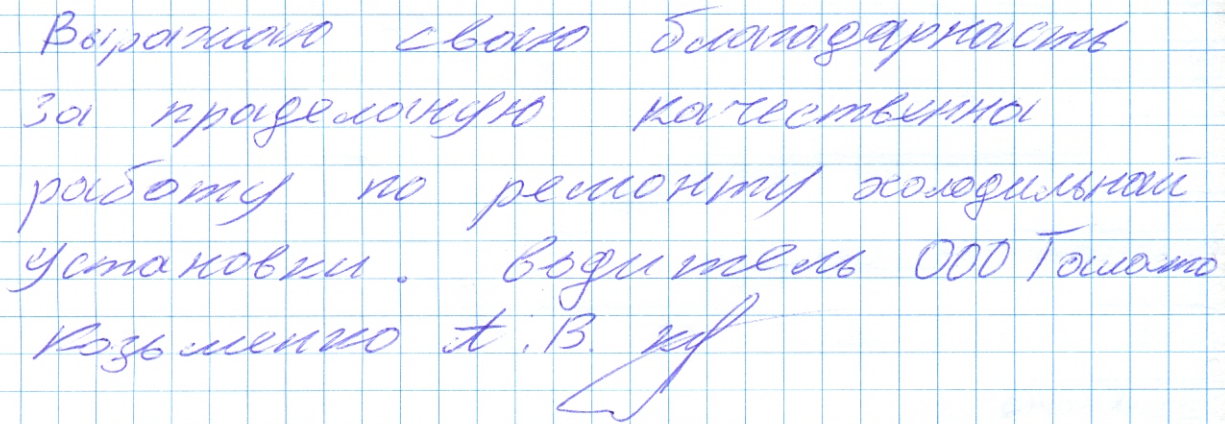 Выражаю свою благадарность
за праделаную качественна
работу по ремонту холодильнай
установки. водитель ООО
Козьменко А.В.